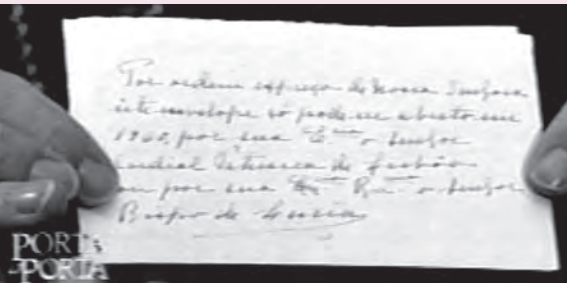 Por ordem expressa de Nossa Senhora
este envelope só pode ser aberto em
1960, por sua Em.cia o Senhor
Cardial Patriarca de Lisboa
ou por sua Ex.cia Rv.ma o Senhor
Bispo de Leiria
PORTA
A PORTA